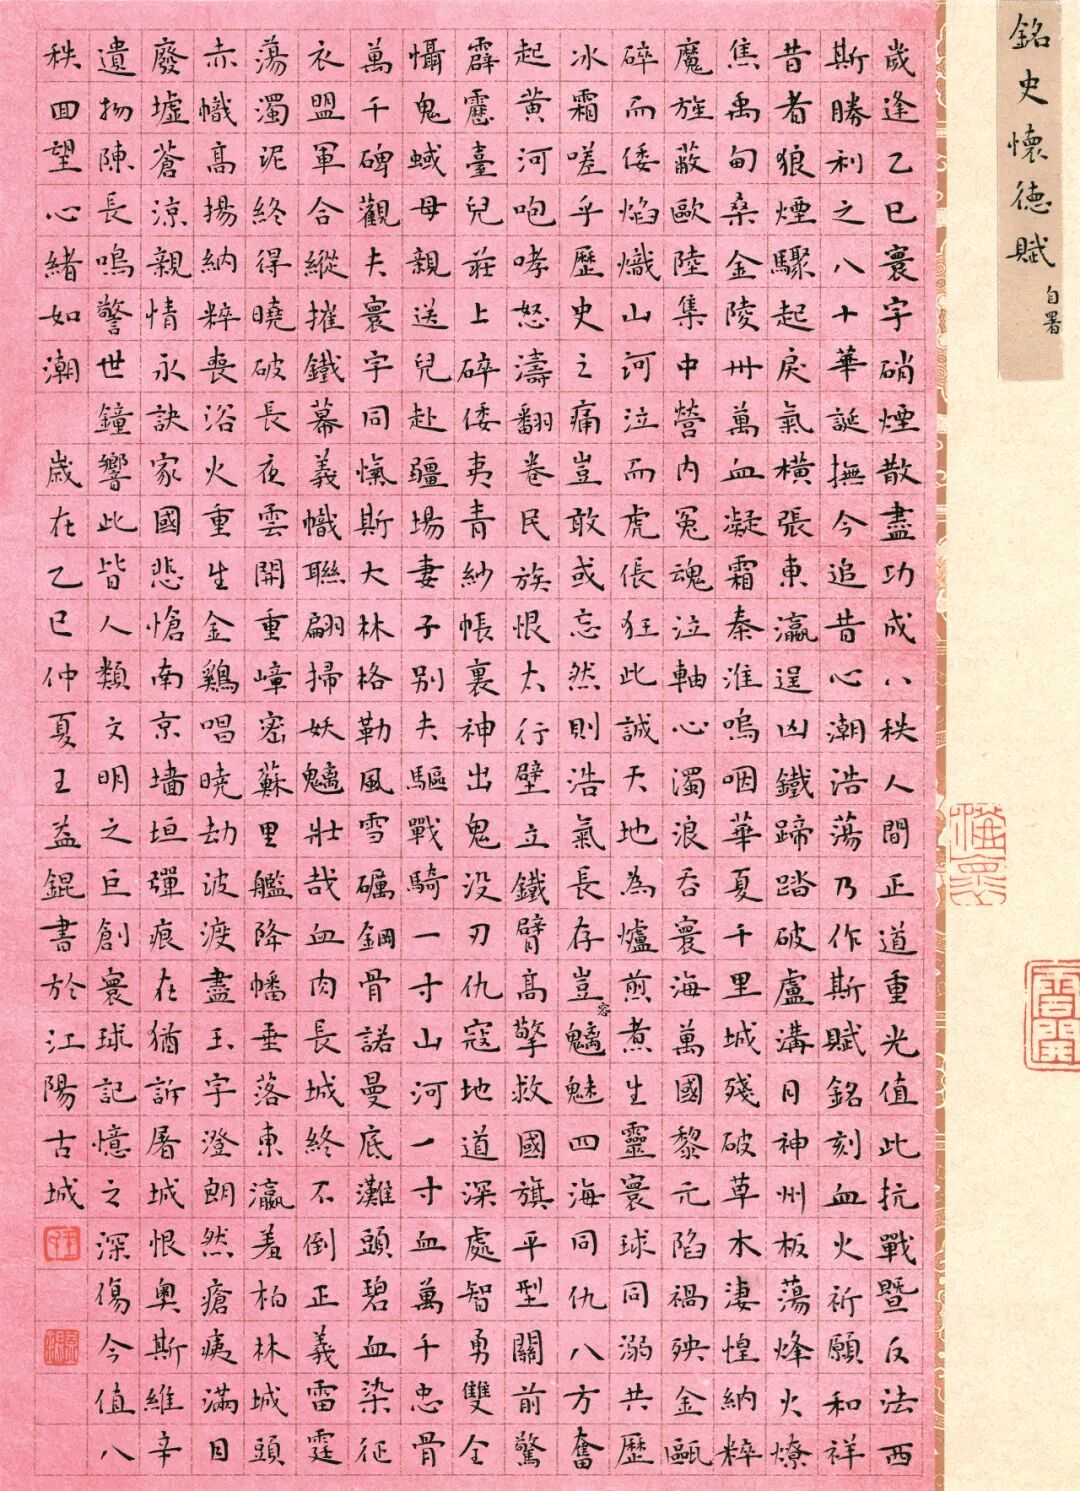 銘史懷德賦 自署
歲逢乙巳寰宇硝煙散盡功成八秩人間正道重光值此抗戰暨反法西
斯勝利之八十華誕撫今追昔心潮浩蕩乃作斯賦銘刻血火祈願和祥
昔者狼煙驟起戾氣橫張東瀛逞凶鐵蹄踏破盧溝月神州板蕩烽火燎
焦禹甸桑金陵卅萬血凝霜秦淮嗚咽華夏千里城殘破草木淒惶納粹
魔旌蔽歐陸集中營內冤魂泣軸心濁浪吞寰海萬國黎元陷禍殃金甌
碎而倭焰熾山河泣而虎倀狂此誠天地為爐煎煮生靈寰球同溺共歷
冰霜嗟乎歷史之痛豈敢或忘然則浩氣長存豈容魑魅四海同仇八方奮
起黃河咆哮怒濤翻卷民族恨太行壁立鐵臂高擎救國旗平型關前驚
霹靂臺兒莊上碎倭夷青紗帳裏神出鬼没刃仇寇地道深處智勇雙全
懾鬼蜮母親送兒赴疆場妻子別夫驅戰騎一寸山河一寸血萬千忠骨
萬千碑觀夫寰宇同愾斯大林格勒風雪礪鋼骨諾曼底灘頭碧血染征
衣盟軍合縱摧鐵幕義幟聯翩掃妖魑壯哉血肉長城終不倒正義雷霆
蕩濁泥終得曉破長夜雲開重嶂密蘇里艦降幡垂落東瀛羞柏林城頭
赤幟高揚納粹喪浴火重生金鷄唱曉劫波渡盡玉宇澄朗然瘡痍滿目
廢墟蒼涼親情永訣家國悲愴南京墻垣彈痕在猶訴屠城恨奧斯維辛
遺物陳長鳴警世鐘響此皆人類文明之巨創寰球記憶之深傷今值八
秩回望心緒如潮 歲在乙巳仲夏王益錕書於江陽古城